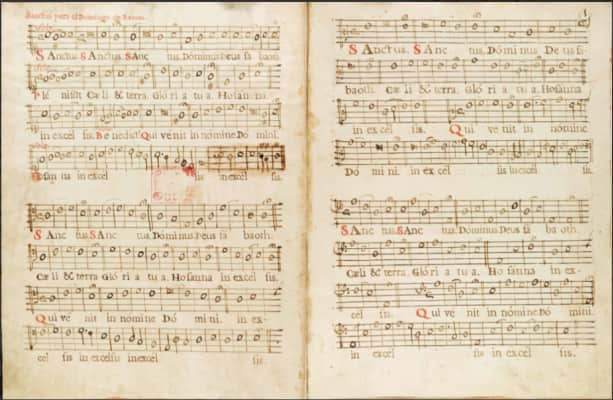 Sanctus para el Domingo de Ramos
SAnctus. SAnctus. SAnc tus. Dóminus Deus sa baoth.
Ple ni sũt Cæ li & terra. Gló ri a tu a. Ho sanna.
in excel sis. Be nedict9 Qui ve nit in nómine Dó mini.
Ho san na in excel sis in excel sis.
SAnc tus. SAnc tus. Dóminus Deus sá baoth.
Cæ li & terra Gló ri a tu a. Ho sanna in ex cel sis.
Qui vé nit in nómine Dó mi ni. in ex-
cel sis in excelsis in excel sis.
SAnctus. SAnc tus. Dómi nus. De us sa
baoth. Cæ li & terra. Gló ri a tu a. Hosanna
in ex cel sis. Qui ve nit in nómine
Dó mi ni. in ex cel sis in excel sis.
SAnc tus SAnc tus. Dóminus. Deus sá baoth.
Cæli & terra. Gló ri a tu a. Ho sanna in ex-
cel sis. Qui vé nit in nómine Dó mini
in excel sis in excel sis.